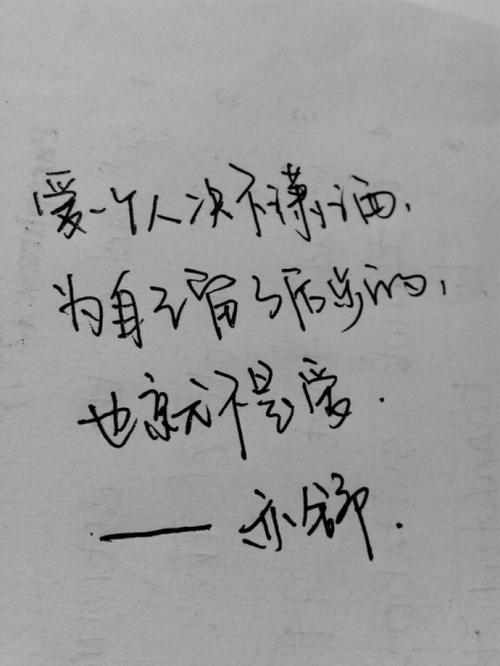 爱一个人决不潇洒，
为自己留了后步的，
也就不是爱．
——亦舒．